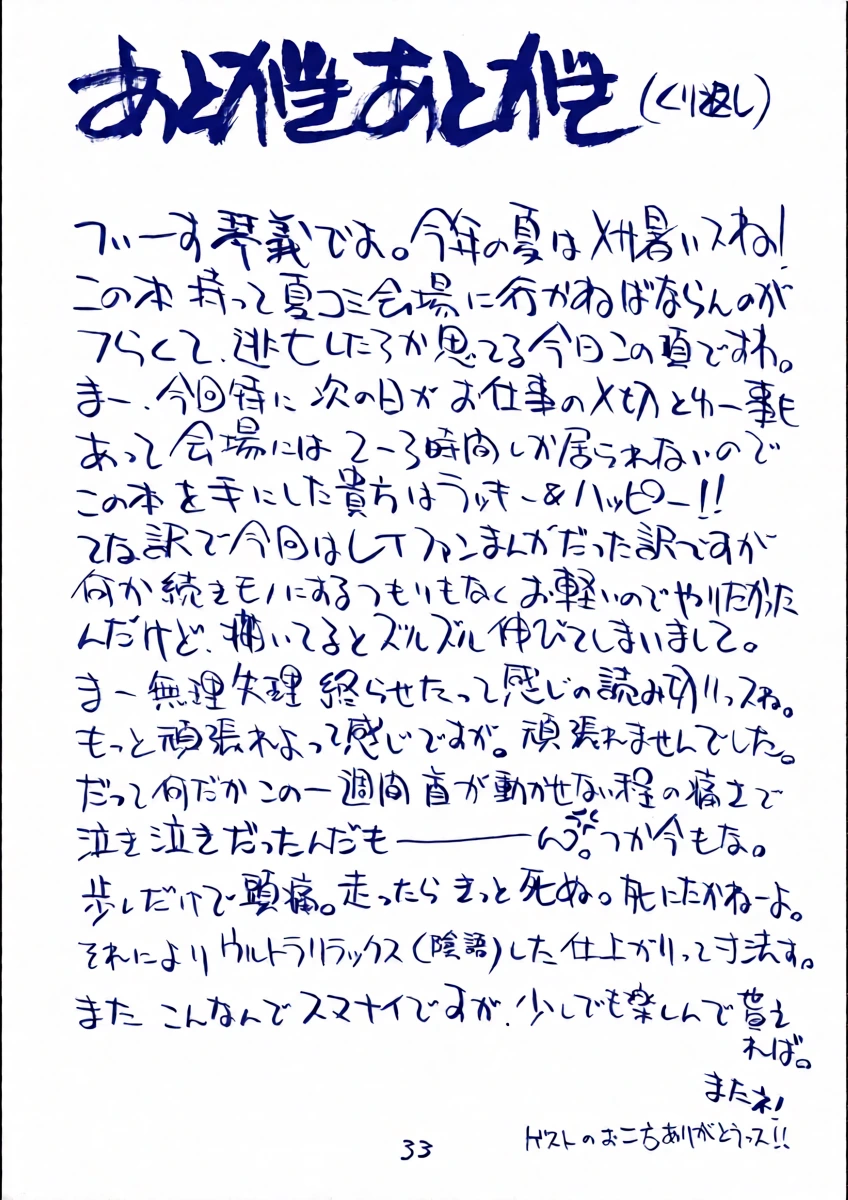 あとがきあとがき(くり返し)
つぃーす琴義でよ。今年の夏はメサ暑いスね!
この本持って夏コミ会場に行かねばならんのが
つらくて、逃亡したろか思てる今日この頃ですわ。
まー、今回特に次の日がお仕事の〆切とゆー事も
あって会場には2〜3時間しか居られないので
この本を手にした貴方はラッキー&ハッピー!!
てな訳で今回はLTファンまんがだった訳ですが
何か続きモノにするつもりもなくお軽いのでやりたかった
んだけど、描いてるとズルズル伸びてしまいまして。
まー無理矢理終らせたって感じの読み切りっスね。
もっと頑張れよって感じですが。頑張れませんでした。
だって何だかこの一週間首が動かせない程の痛さで
泣き泣きだったんだも――――ん。つか今もな。
歩いただけで頭痛。走ったらきっと死ぬ。死にたかねーよ。
それによりウルトラリラックス(陰語)した仕上がりって寸法す。
またこんなんでスマナイですが、少しでも楽しんで貰え
れば。
またネ!
ゲストのお二方ありがとうっス!!
33